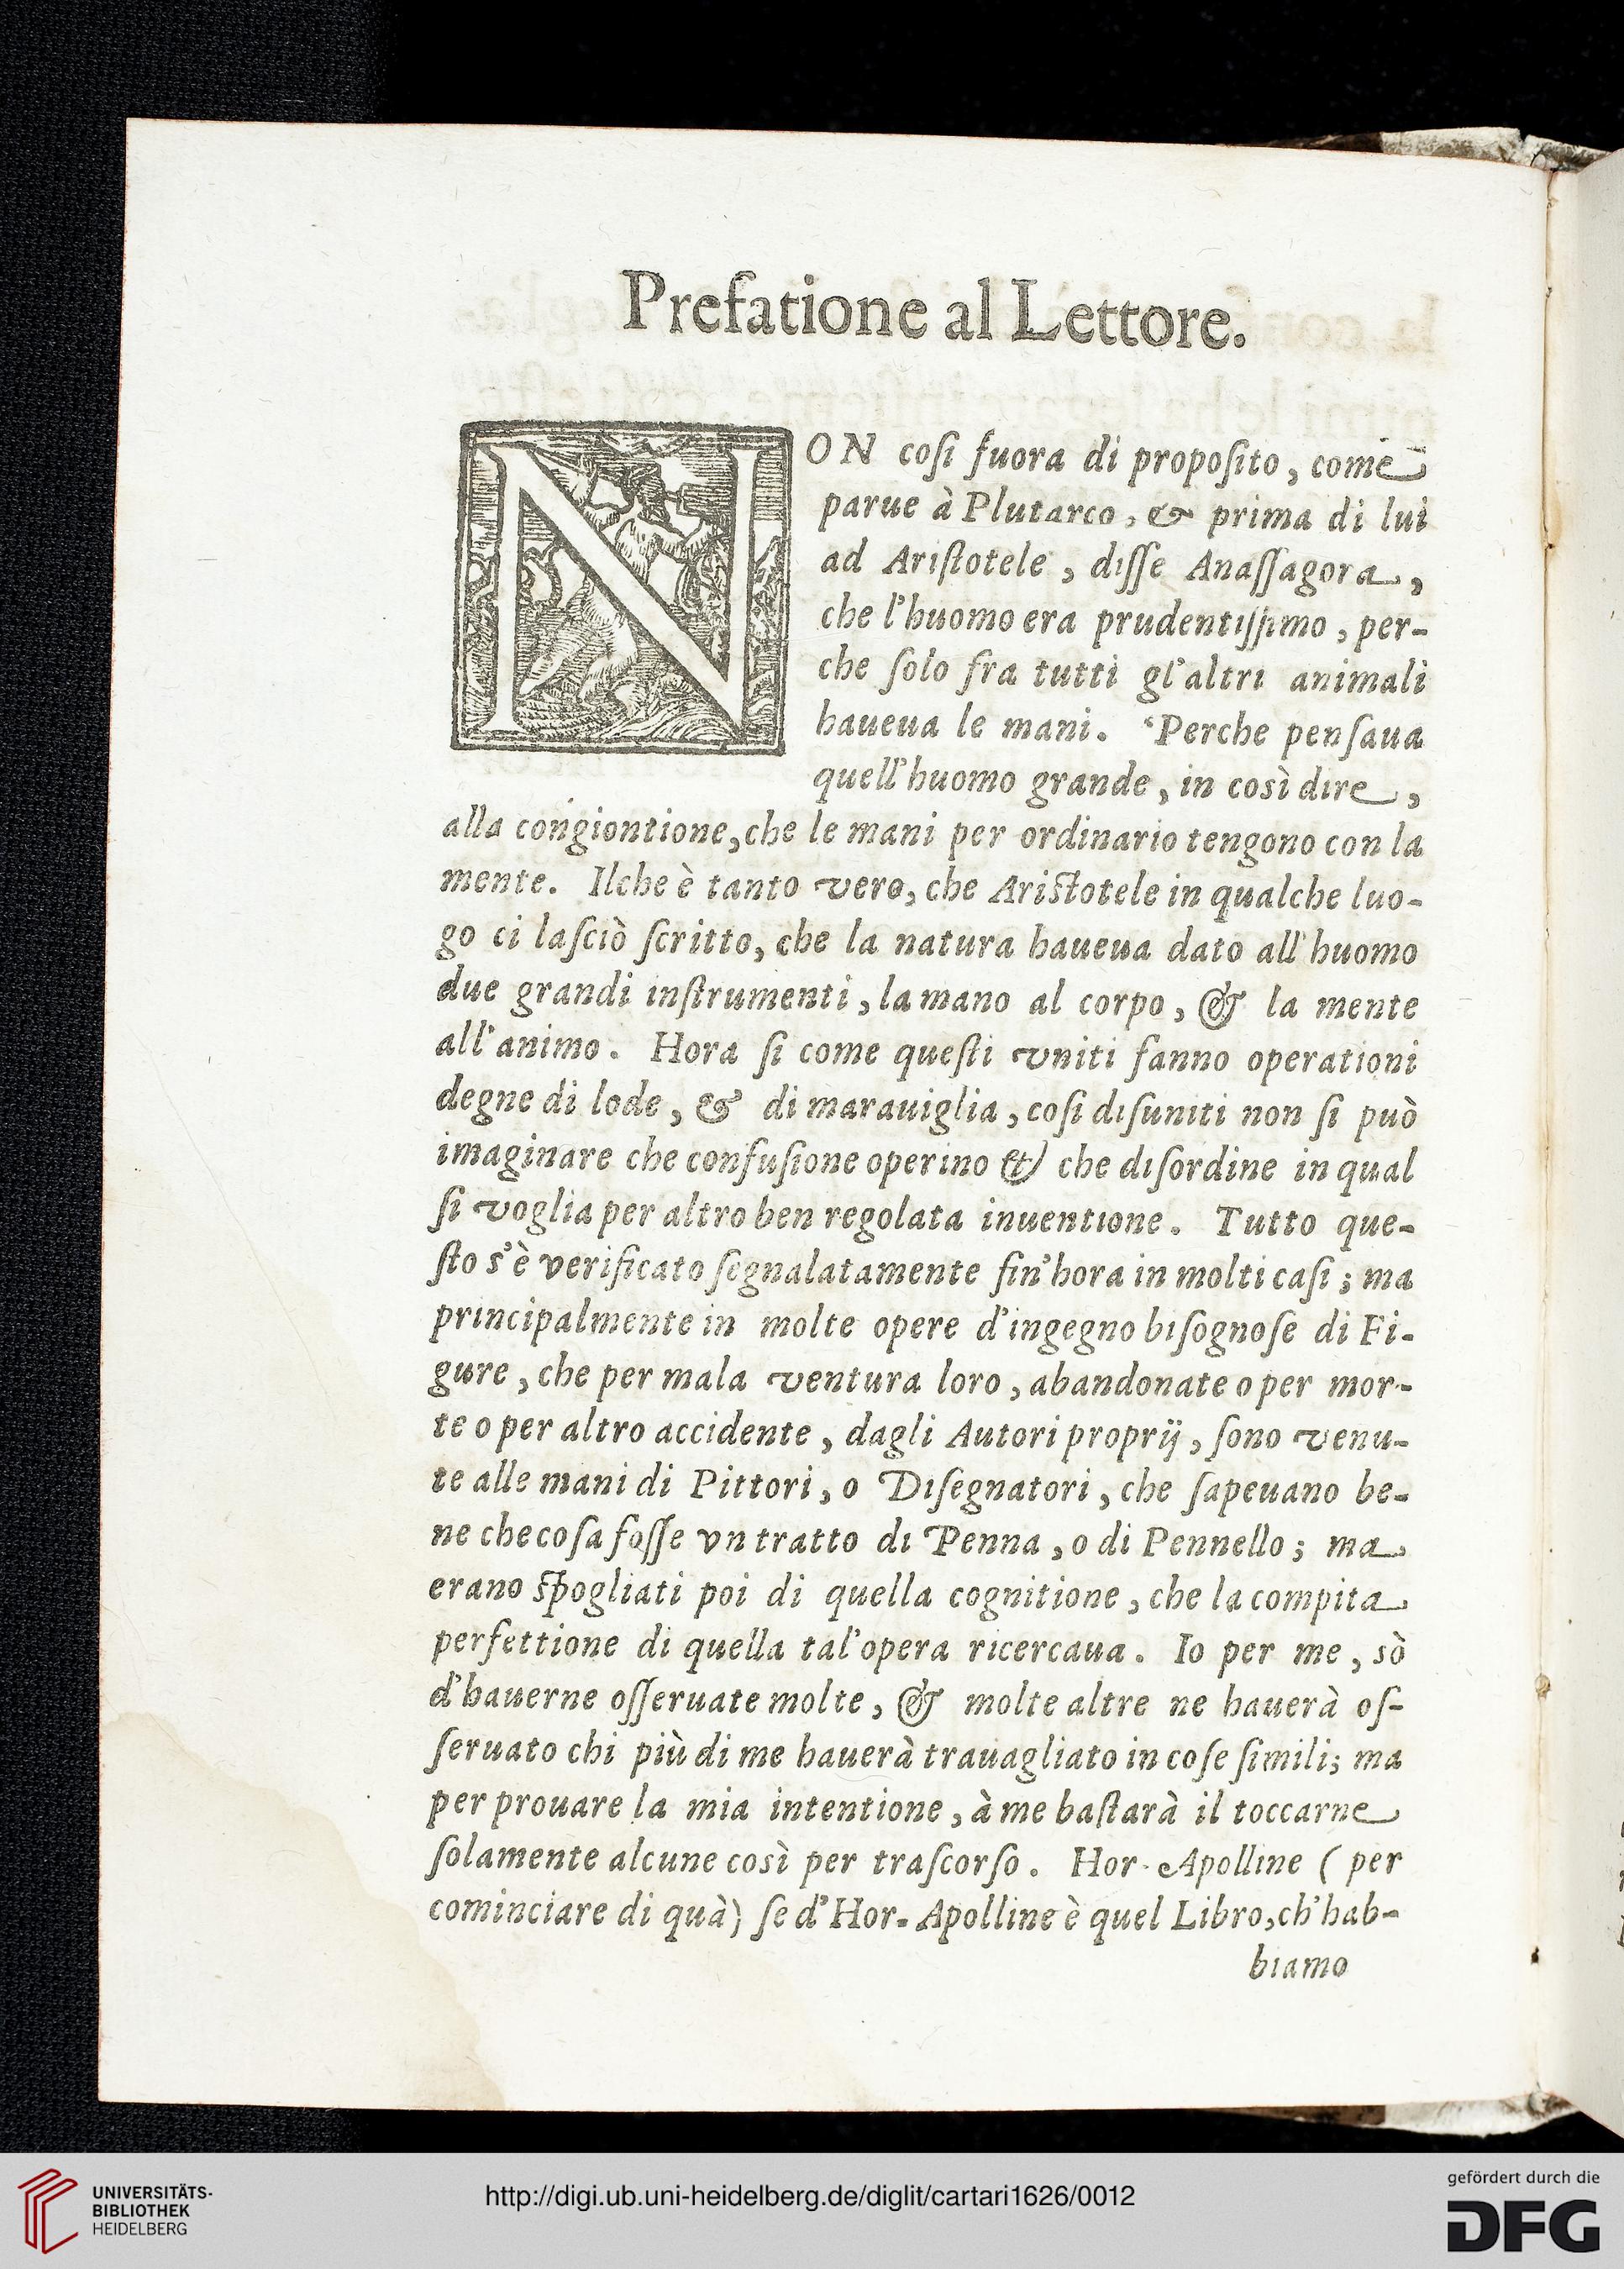 Prefatione al Lettore.
NON coſi fuora di propoſito, come
parue à Plutarco, & prima di lui
ad Ariſtotele, diſſe Anaſſagora,
che l'huomo era prudentiſſimo, per-
che ſolo fra tutti gl'altri animali
haueua le mani. Perche penſaua
quell'huomo grande, in così dire,
alla congiontione, che le mani per ordinario tengono con la
mente. Ilche è tanto vero, che Ariſtotele in qualche luo-
go ci laſciò ſcritto, che la natura haueua dato all'huomo
due grandi inſtrumenti, la mano al corpo, & la mente
all'animo. Hora ſi come queſti vniti fanno operationi
degne di lode, & di marauiglia, coſi diſuniti non ſi può
imaginare che confuſione operino & che diſordine in qual
ſi voglia per altro ben regolata inuentione. Tutto que-
ſto s'è verificato ſegnalatamente fin'hora in molti caſi; ma
principalmente in molte opere d'ingegno biſognoſe di Fi-
gure, che per mala ventura loro, abandonate o per mor-
te o per altro accidente, dagli Autori proprij, ſono venu-
te alle mani di Pittori, o Diſegnatori, che ſapeuano be-
ne che coſa foſſe vn tratto di Penna, o di Pennello; ma
erano spogliati poi di quella cognitione, che la compita
perfettione di quella tal'opera ricercaua. Io per me, sò
d'hauerne oſſeruate molte, & molte altre ne hauerà oſ-
ſeruato chi più di me hauerà trauagliato in coſe ſimili; ma
per prouare la mia intentione, à me baſtarà il toccarne
ſolamente alcune così per traſcorſo. Hor Apolline ( per
cominciare di quà) ſe d'Hor-Apolline è quel Libro, ch'hab-
biamo
UNIVERSITÄTS-
BIBLIOTHEK
HEIDELBERG
http://digi.ub.uni-heidelberg.de/diglit/cartari1626/0012
gefördert durch die
DFG